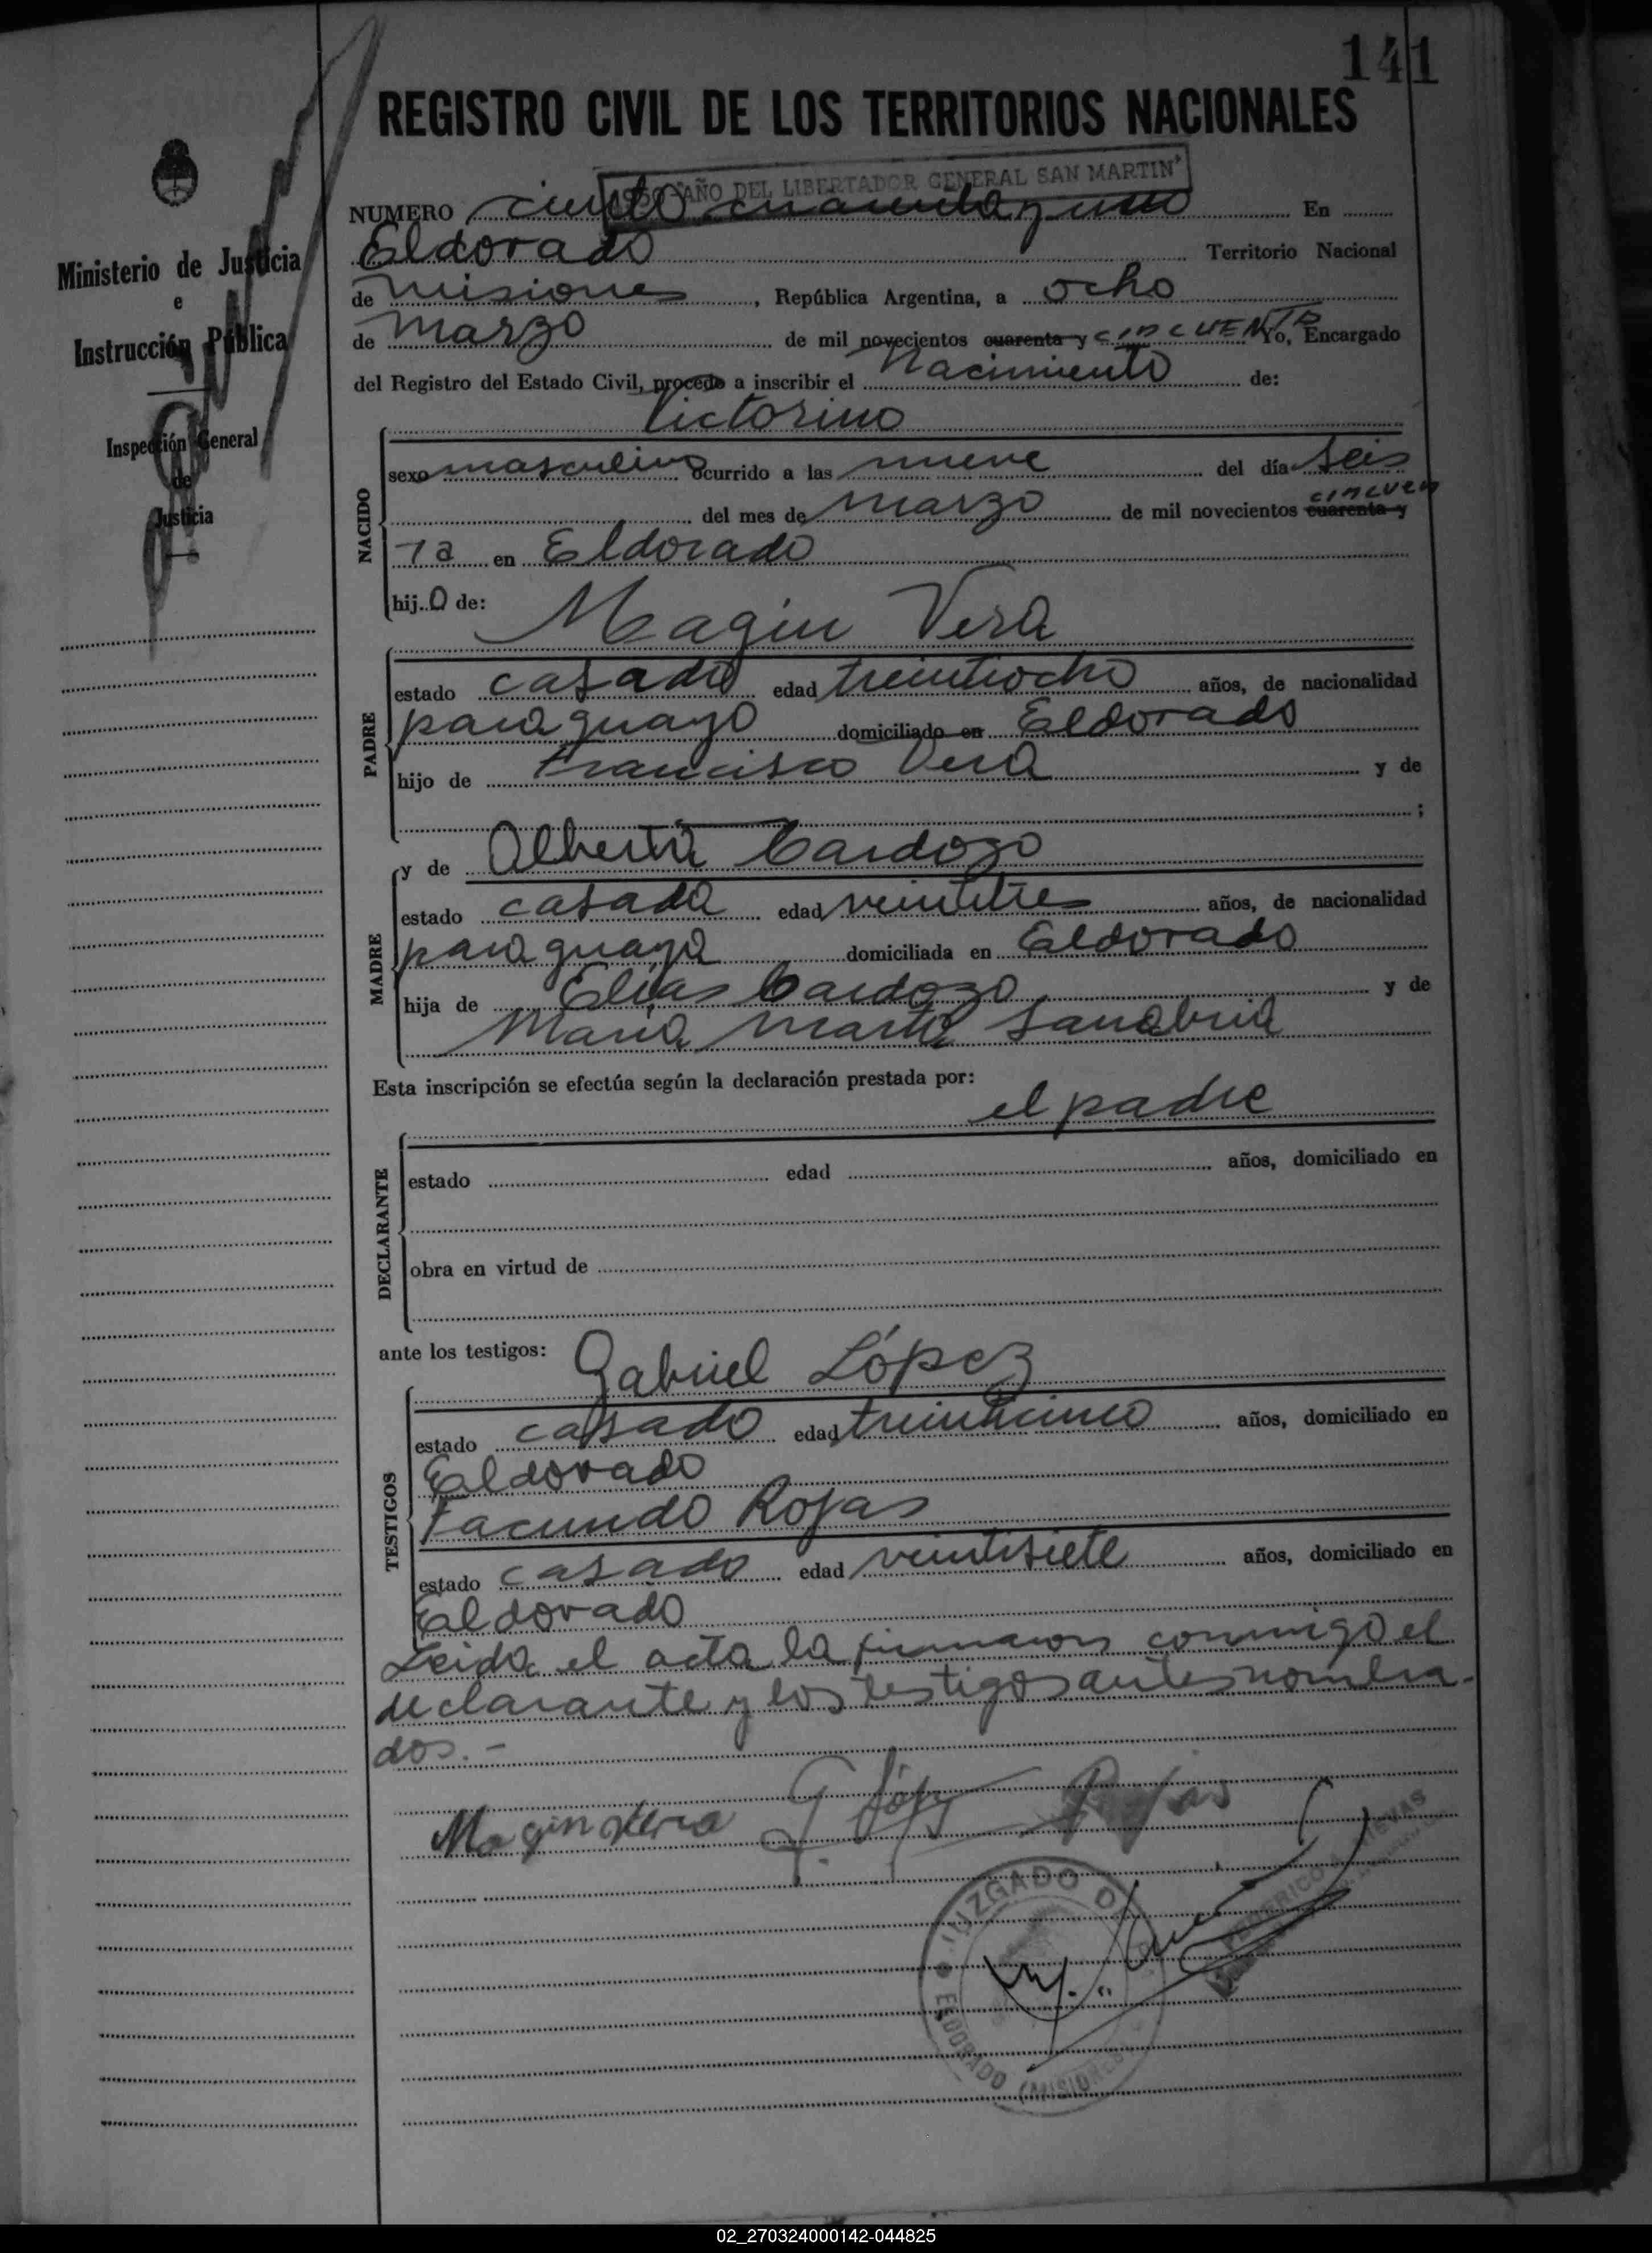 141
REGISTRO CIVIL DE LOS TERRITORIOS NACIONALES
AÑO DEL LIBERTADOR GENERAL SAN MARTIN
NUMERO ciento cuarenta y uno En
Eldorado Territorio Nacional
de Misiones, República Argentina, a ocho
de Marzo de mil novecientos cuarenta y CINCUENTA Yo, Encargado
del Registro del Estado Civil, procedo a inscribir el Nacimiento de:
Victorino
NACIDO
sexo masculino ocurrido a las nueve del día seis
del mes de Marzo de mil novecientos cuarenta y cincuen
ta en Eldorado
hijo de:
Magin Vera
PADRE
estado casado edad treintiocho años, de nacionalidad
paraguayo domiciliado en Eldorado
hijo de Francisco Vera y de
;
MADRE
y de Alberta Cardozo
estado casada edad veintitres años, de nacionalidad
paraguaya domiciliada en Eldorado
hija de Elías Cardozo y de
María Marta Sanabria
Esta inscripción se efectúa según la declaración prestada por:
el padre
DECLARANTE
estado edad años, domiciliado en
obra en virtud de
ante los testigos:
Gabriel López
TESTIGOS
estado casado edad treinticinco años, domiciliado en
Eldorado
Facundo Rojas
estado casado edad veintisiete años, domiciliado en
Eldorado
Leida el acta la firmaron conmigo el
declarante y los testigos antes nombra-
dos.-
Magin Vera G. López Rojas
JUZGADO DE
ELDORADO (MISIONES)
FEDERICO
Ministerio de Justicia
e
Instrucción Pública
Inspección General
de
Justicia
02_270324000142-044825